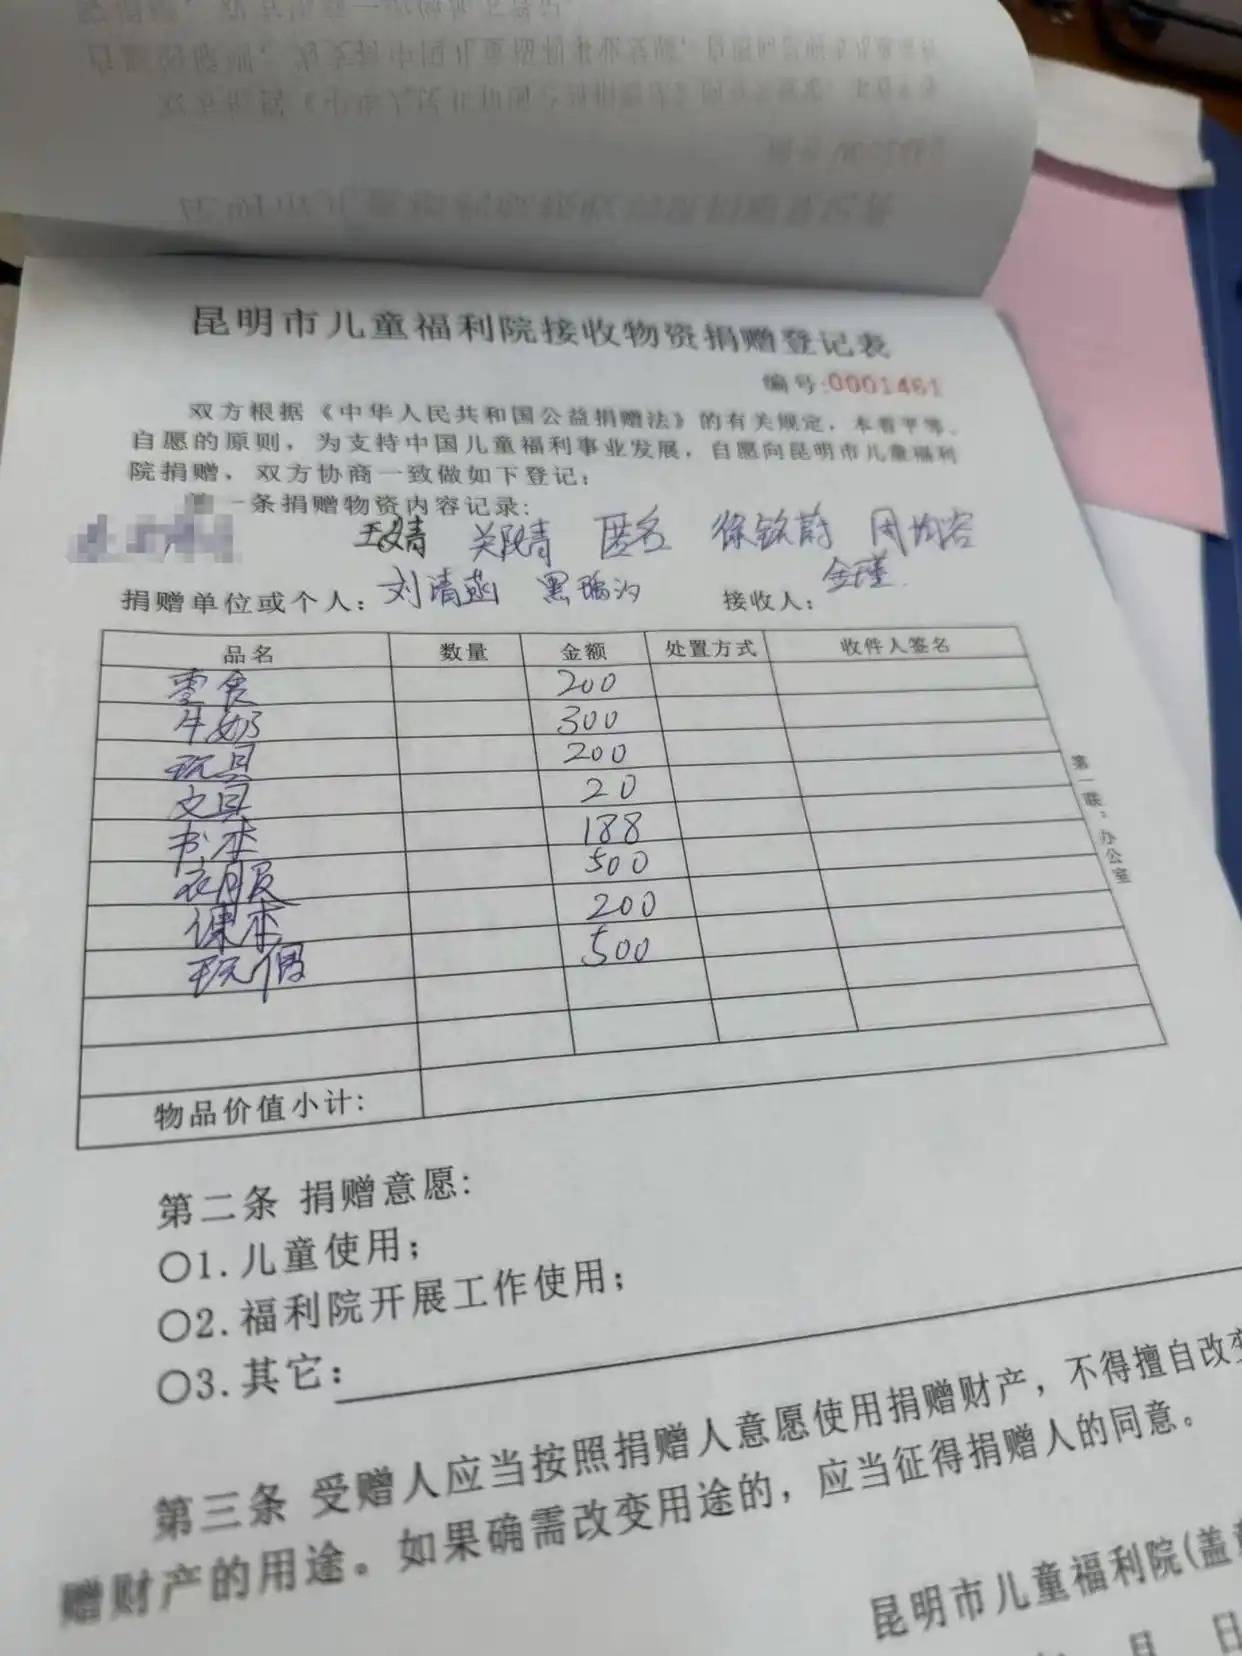 昆明市儿童福利院接收物资捐赠登记表
编号:0001461
双方根据《中华人民共和国公益捐赠法》的有关规定，本着平等、
自愿的原则，为支持中国儿童福利事业发展，自愿向昆明市儿童福利
院捐赠，双方协商一致做如下登记：
一条捐赠物资内容记录：
匿名
捐赠单位或个人： 刘清函 黑瑞汐 接收人： 金瑾
品名 数量 金额 处置方式 收件人签名
零食 200
牛奶 300
玩具 200
文具 20
书本 188
衣服 500
课本 200
玩偶 500
物品价值小计：
第一联：办公室
第二条 捐赠意愿：
○1.儿童使用；
○2.福利院开展工作使用；
○3.其它：
第三条 受赠人应当按照捐赠人意愿使用捐赠财产，不得擅自改变
赠财产的用途。如果确需改变用途的，应当征得捐赠人的同意。
昆明市儿童福利院(盖章
月 日